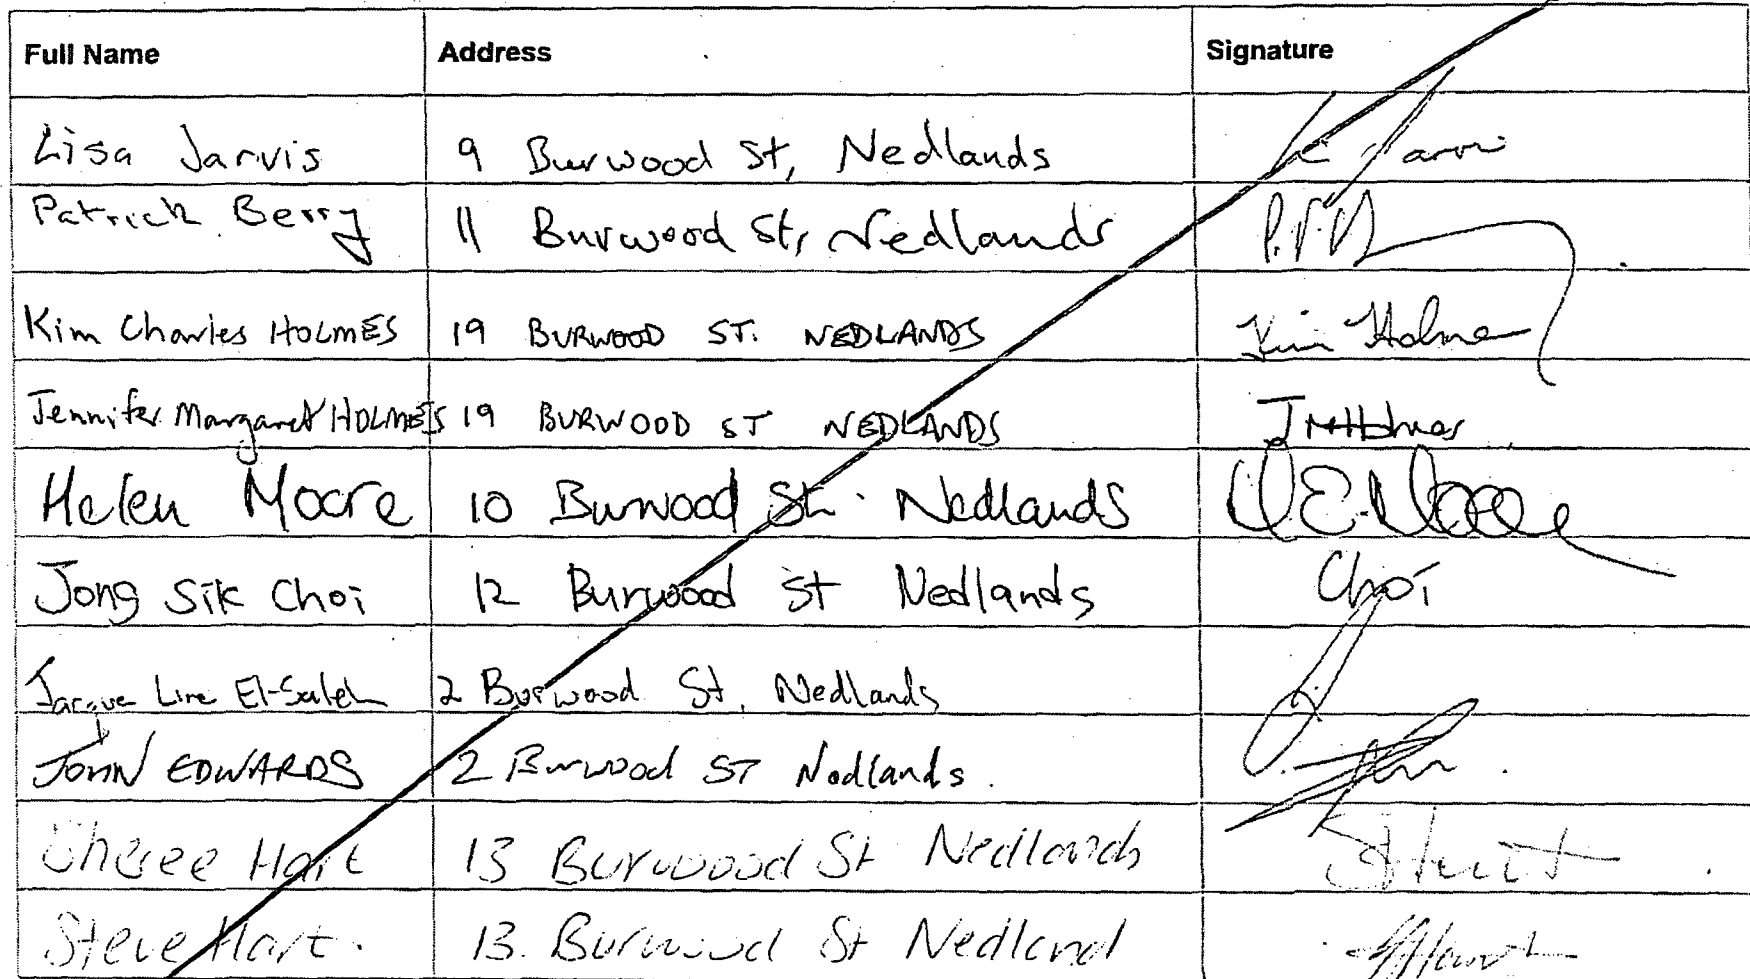 Full Name Address Signature
Lisa Jarvis 9 Burwood St, Nedlands
Patrick Berry 11 Burwood St, Nedlands
Kim Charles HOLMES 19 BURWOOD ST. NEDLANDS Kim Holmes
Jennifer Margaret HOLMES 19 BURWOOD ST NEDLANDS JMHolmes
Helen Moore 10 Burwood St. Nedlands
Jong Sik Choi 12 Burwood St Nedlands Choi
Line El-Saleh 2 Burwood St, Nedlands
JOHN EDWARDS 2 Burwood ST Nedlands.
Cheree Hart 13 Burwood St Nedlands
Steve Hart. 13. Burwood St Nedland